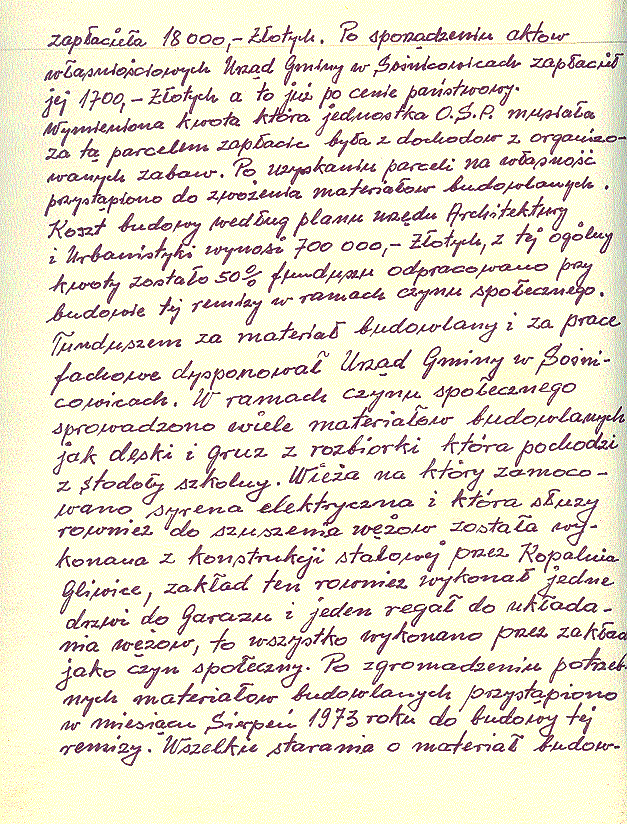 zapłaciła 18 000,- Złotych. Po sporządzeniu aktow
własniościowych Urząd Gminy w Sośnicowicach zapłacił
jej 1700,- Złotych a to już po cenie państwowy.
Wymieniona kwota która jednostka O.S.P. musiała
za tą parcelem zapłacic była z dochodow z organizo-
wanych zabaw. Po uzyskaniu parceli na własność
przystąpiono do zwożenia materiałow budowlanych.
Koszt budowy według planu urzędu Architektury
i Urbanistyki wynosi 700 000,- Złotych, z tej ogólny
kwoty zostało 50% funduszu odpracowano przy
budowie tej remizy w ramach czynu społecznego.
Funduszem za materiał budowlany i za prace
fachowe dysponował Urząd Gminy w Sośni-
cowicach. W ramach czynu społecznego
sprowadzono wiele materiałow budowlanych
jak deski i gruz z rozbiorki która pochodzi
z stodoły szkolny. Wieża na który zamoco-
wano syrena elektryczna i która służy
rownież do szuszenia wężow została wy-
konana z konstrukcji stalowej przez Kopalnia
Gliwice, zakład ten rownież wykonał jedne
drzwi do Garazu i jeden regał do układa-
nia wężow, to wszystko wykonano przez zakład
jako czyn społeczny. Po zgromadzeniu potrzeb-
nych materiałow budowlanych przystąpiono
w miesiącu Sierpeń 1973 roku do budowy tej
remizy. Wszelkie starania o materiał budow-